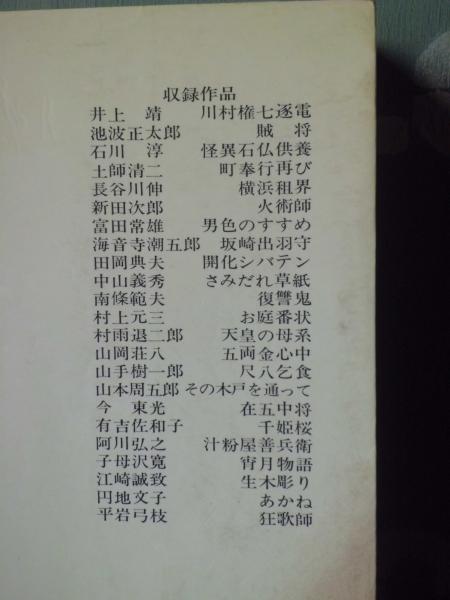 収録作品
井上 靖 川村権七逐電
池波正太郎 賊将
石川 淳 怪異石仏供養
土師清二 町奉行再び
長谷川伸 横浜租界
新田次郎 火術師
富田常雄 男色のすすめ
海音寺潮五郎 坂崎出羽守
田岡典夫 開化シバテン
中山義秀 さみだれ草紙
南條範夫 復讐鬼
村上元三 お庭番状
村雨退二郎 天皇の母系
山岡荘八 五両金心中
山手樹一郎 尺八乞食
山本周五郎 その木戸を通って
今 東光 在五中将
有吉佐和子 千姫桜
阿川弘之 汁粉屋善兵衛
子母沢寛 宵月物語
江崎誠致 生木彫り
円地文子 あかね
平岩弓枝 狂歌師